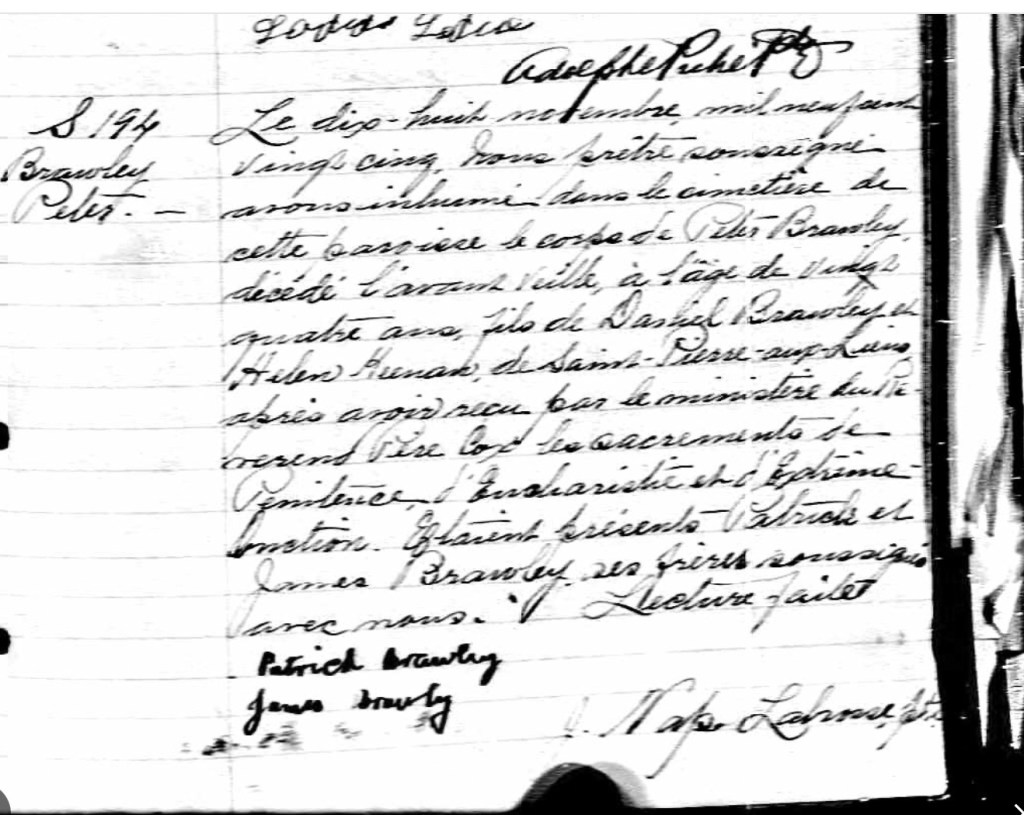 Adolphe Piché Ptre
S 194
Brawley
Peter. —
Le dix-huit novembre, mil neuf cent
vingt cinq, nous prêtre soussigné
avons inhumé dans le cimetière de
cette paroisse le corps de Peter Brawley,
décédé l'avant veille, à l'âge de vingt
quatre ans, fils de Daniel Brawley et
Helen Keenan, de Saint-Pierre-aux-Liens,
après avoir reçu par le ministère du Ré-
verend Père Cox les sacrements de
Pénitence, d'Eucharistie et d'Extrême-
Onction. Etaient présents Patrick et
James Brawley ses frères soussignés
avec nous. Lecture faite
Patrick Brawley
James Brawley
J. Nap. Labrosse, ptre